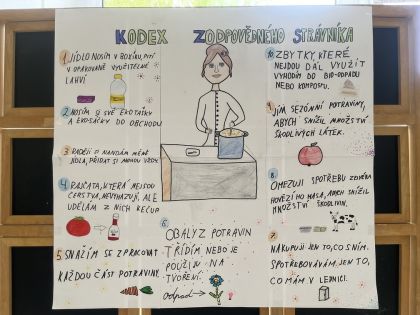 KODEX ZODPOVĚDNÉHO STRÁVNÍKA
1. JÍDLO NOSÍM V BOXÍKU, PITÍ
V OPAKOVANĚ VYUŽITELNÉ
LAHVI.
2. NOSÍM SI SVÉ EKOTAŠKY
A EKOSÁČKY DO OBCHODU
3. RADĚJI SI NANDÁM MÉNĚ
JÍDLA, PŘIDAT SI MOHU VŽDY.
4. RAJČATA, KTERÁ NEJSOU
ČERSTVÁ, NEVYHAZUJI, ALE
UDĚLÁM Z NICH KEČUP
5. SNAŽÍM SE ZPRACOVAT
KAŽDOU ČÁST POTRAVINY.
6.
OBALY Z POTRAVIN
TŘÍDÍM, NEBO JE
POUŽIJU NA
TVOŘENÍ.
Odpad
10. ZBYTKY, KTERÉ
NEJDOU DÁL VYUŽÍT
VYHODÍM DO BIO-ODPADU
NEBO KOMPOSTU.
9. JÍM SEZÓNNÍ POTRAVINY,
ABYCH SNÍŽIL MNOŽSTVÍ
ŠKODLIVÝCH LÁTEK.
8.
OMEZUJI SPOTŘEBU
HOVĚZÍHO MASA, ABYCH SNÍŽIL
MNOŽSTVÍ ŠKODLIVIN.
7.
NAKUPUJI JEN TO, CO SNÍM.
SPOTŘEBOVÁVÁM JEN TO,
CO MÁM V LEDNICI.